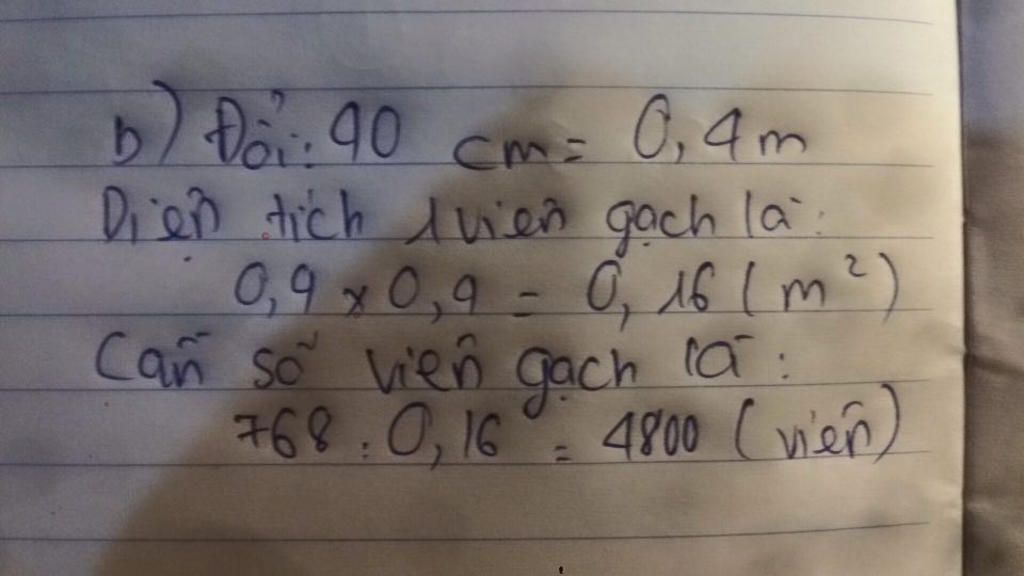 b) Đổi: 40 cm = 0,4m
Diện tích 1 viên gạch là:
0,4 x 0,4 = 0,16 (m²)
Cần số viên gạch là:
768 : 0,16 = 4800 (viên)